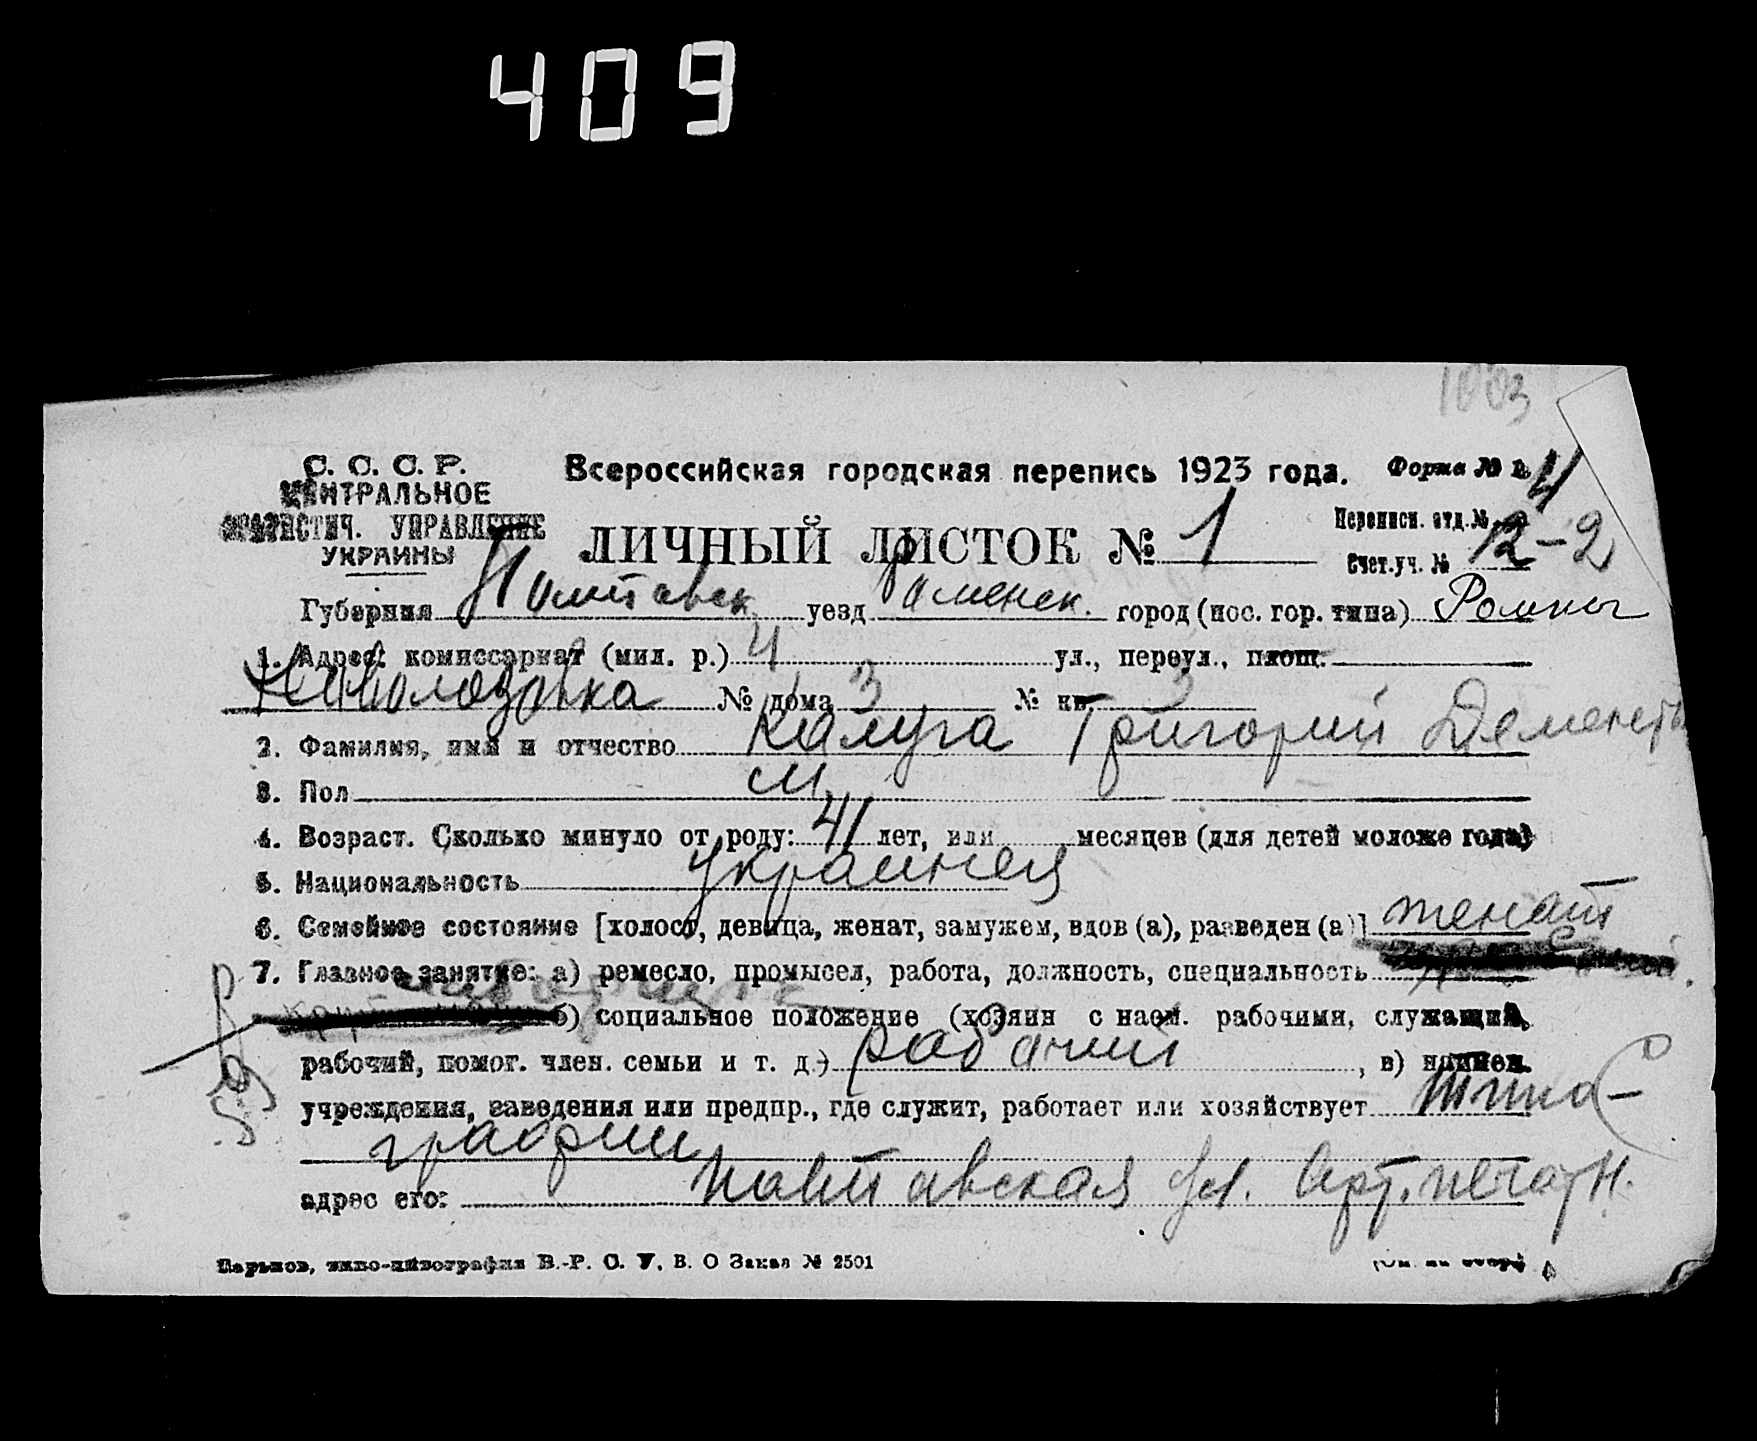 409
1003
С. С. С. Р.
ЦЕНТРАЛЬНОЕ
СТАТИСТИЧ. УПРАВЛЕНИЕ
УКРАИНЫ
Всероссийская городская перепись 1923 года.
Форма №
ЛИЧНЫЙ ЛИСТОК № 1
Переписн. отд. № 4
Счет. уч. № 12-2
Губерния Полтавск. уезд Роменск. город (пос. гор. типа) Ромны
1. Адрес: комиссариат (мил. р.) 4 ул., переул., площ.
№ дома 3 № кв. 3
2. Фамилия, имя и отчество Калуга Григорий Дементь
3. Пол м.
4. Возраст. Сколько минуло от роду: 41 лет, или месяцев (для детей моложе года)
5. Национальность украинец
6. Семейное состояние [холост, девица, женат, замужем, вдов (а), разведен (а)] женат
7. Главное занятие: а) ремесло, промысел, работа, должность, специальность
б) социальное положение (хозяин с наем. рабочими, служащий,
рабочий, помог. член. семьи и т. д.) рабочий, в) наимен.
учреждения, заведения или предпр., где служит, работает или хозяйствует типо-
графии
адрес его: Полтавская ул. Арт. печатн.
Харьков, типо-литография В.-Р. С. У. В. О Заказ № 2501